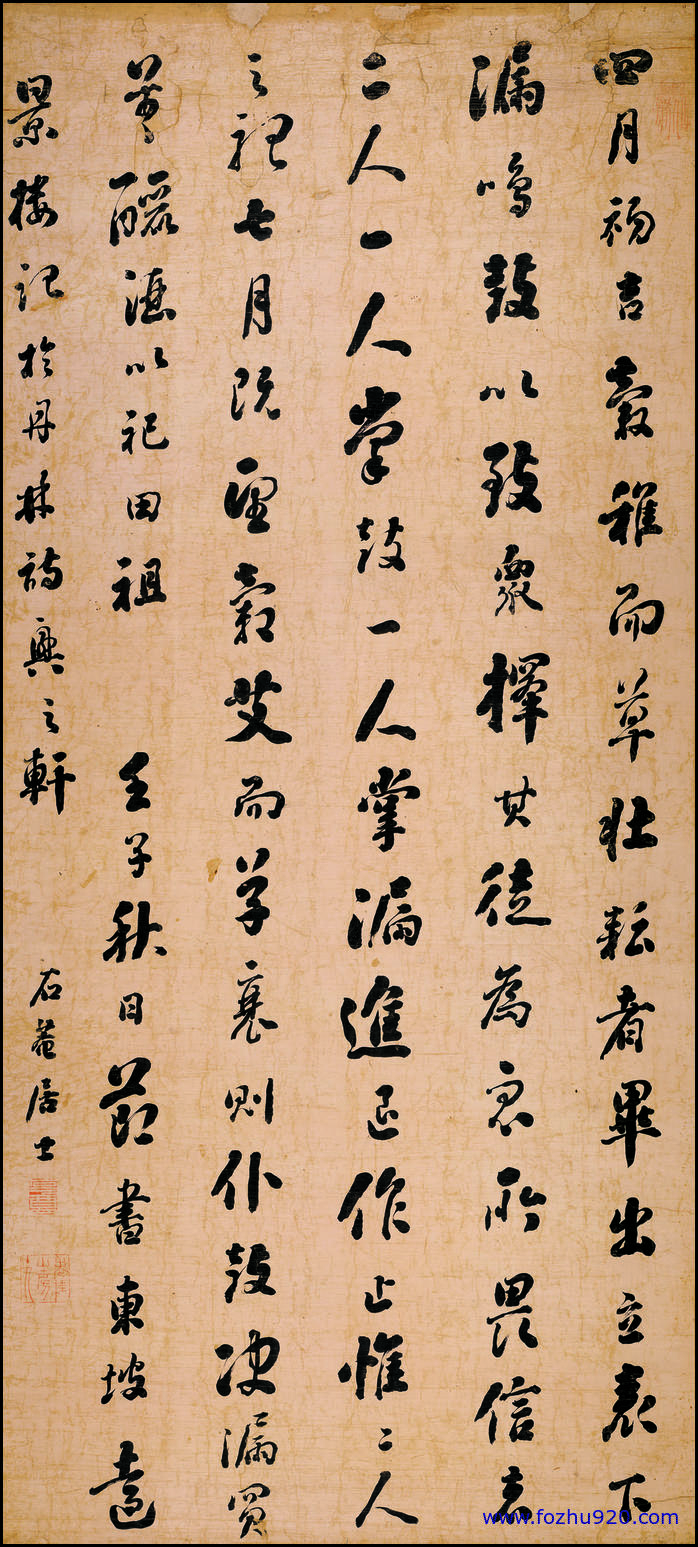 四月初吉穀稚而草壯耘者畢出立表下
漏鳴鼓以致衆擇其徒為衆所畏信者
二人一人掌鼓一人掌漏進退作止惟二人
之聽七月既望穀艾而草衰則仆鼓决漏買
羊釃酒以祀田祖 壬子秋日節書東坡遠
景樓記於丹林詩興之軒
石菴居士
www.fozhu920.com